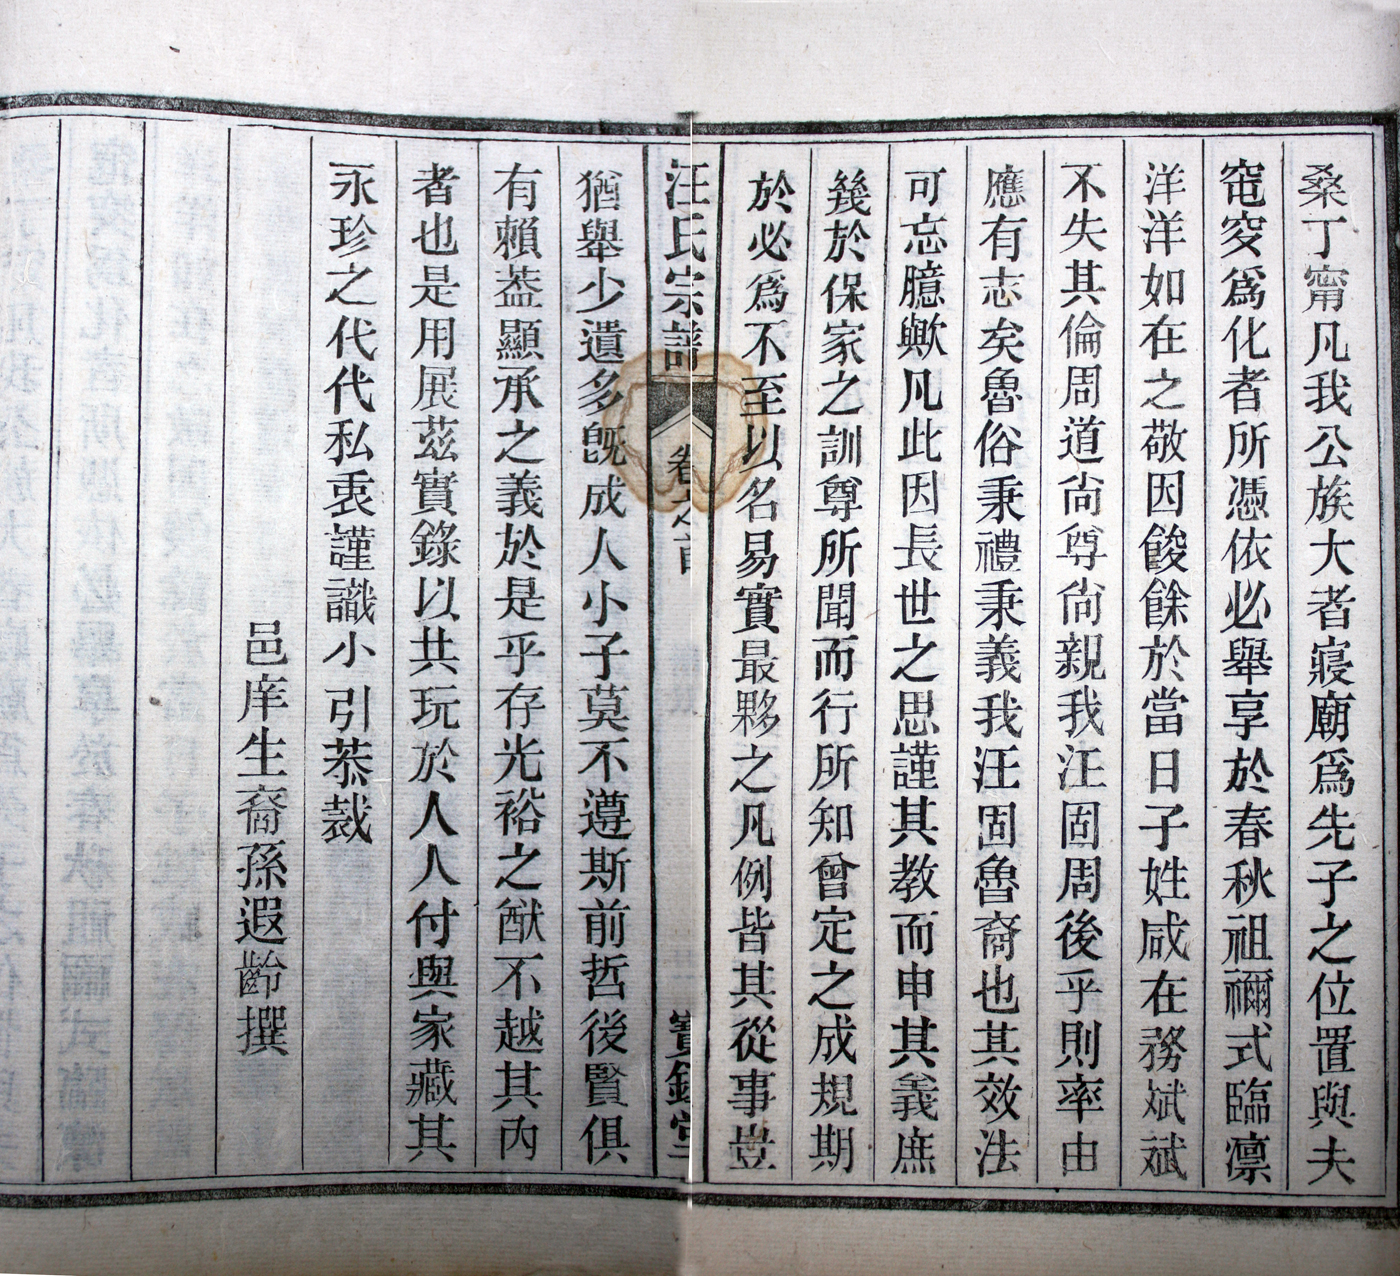 桑丁甯凡我公族大者寢廟爲先子之位置與夫
窀窆爲化者所憑依必舉享於春秋祖禰式臨凛
洋洋如在之敬因餕餘於當日子姓咸在務斌斌
不失其倫周道尙尊尙親我汪固周後乎則率由
應有志矣魯俗秉禮秉義我汪固魯裔也其效法
可忘臆歟凡此因長世之思謹其教而申其義庶
幾於保家之訓尊所聞而行所知曾定之成規期
於必爲不至以名易實最夥之凡例皆其從事豈
汪氏宗譜 卷之首 實錄堂
猶舉少遺多旣成人小子莫不遵斯前哲後賢俱
有賴葢顯承之義於是乎存光裕之猷不越其內
者也是用展茲實錄以共玩於人人付與家藏其
永珍之代代私衷謹識小引恭裁
邑庠生裔孫遐齡撰